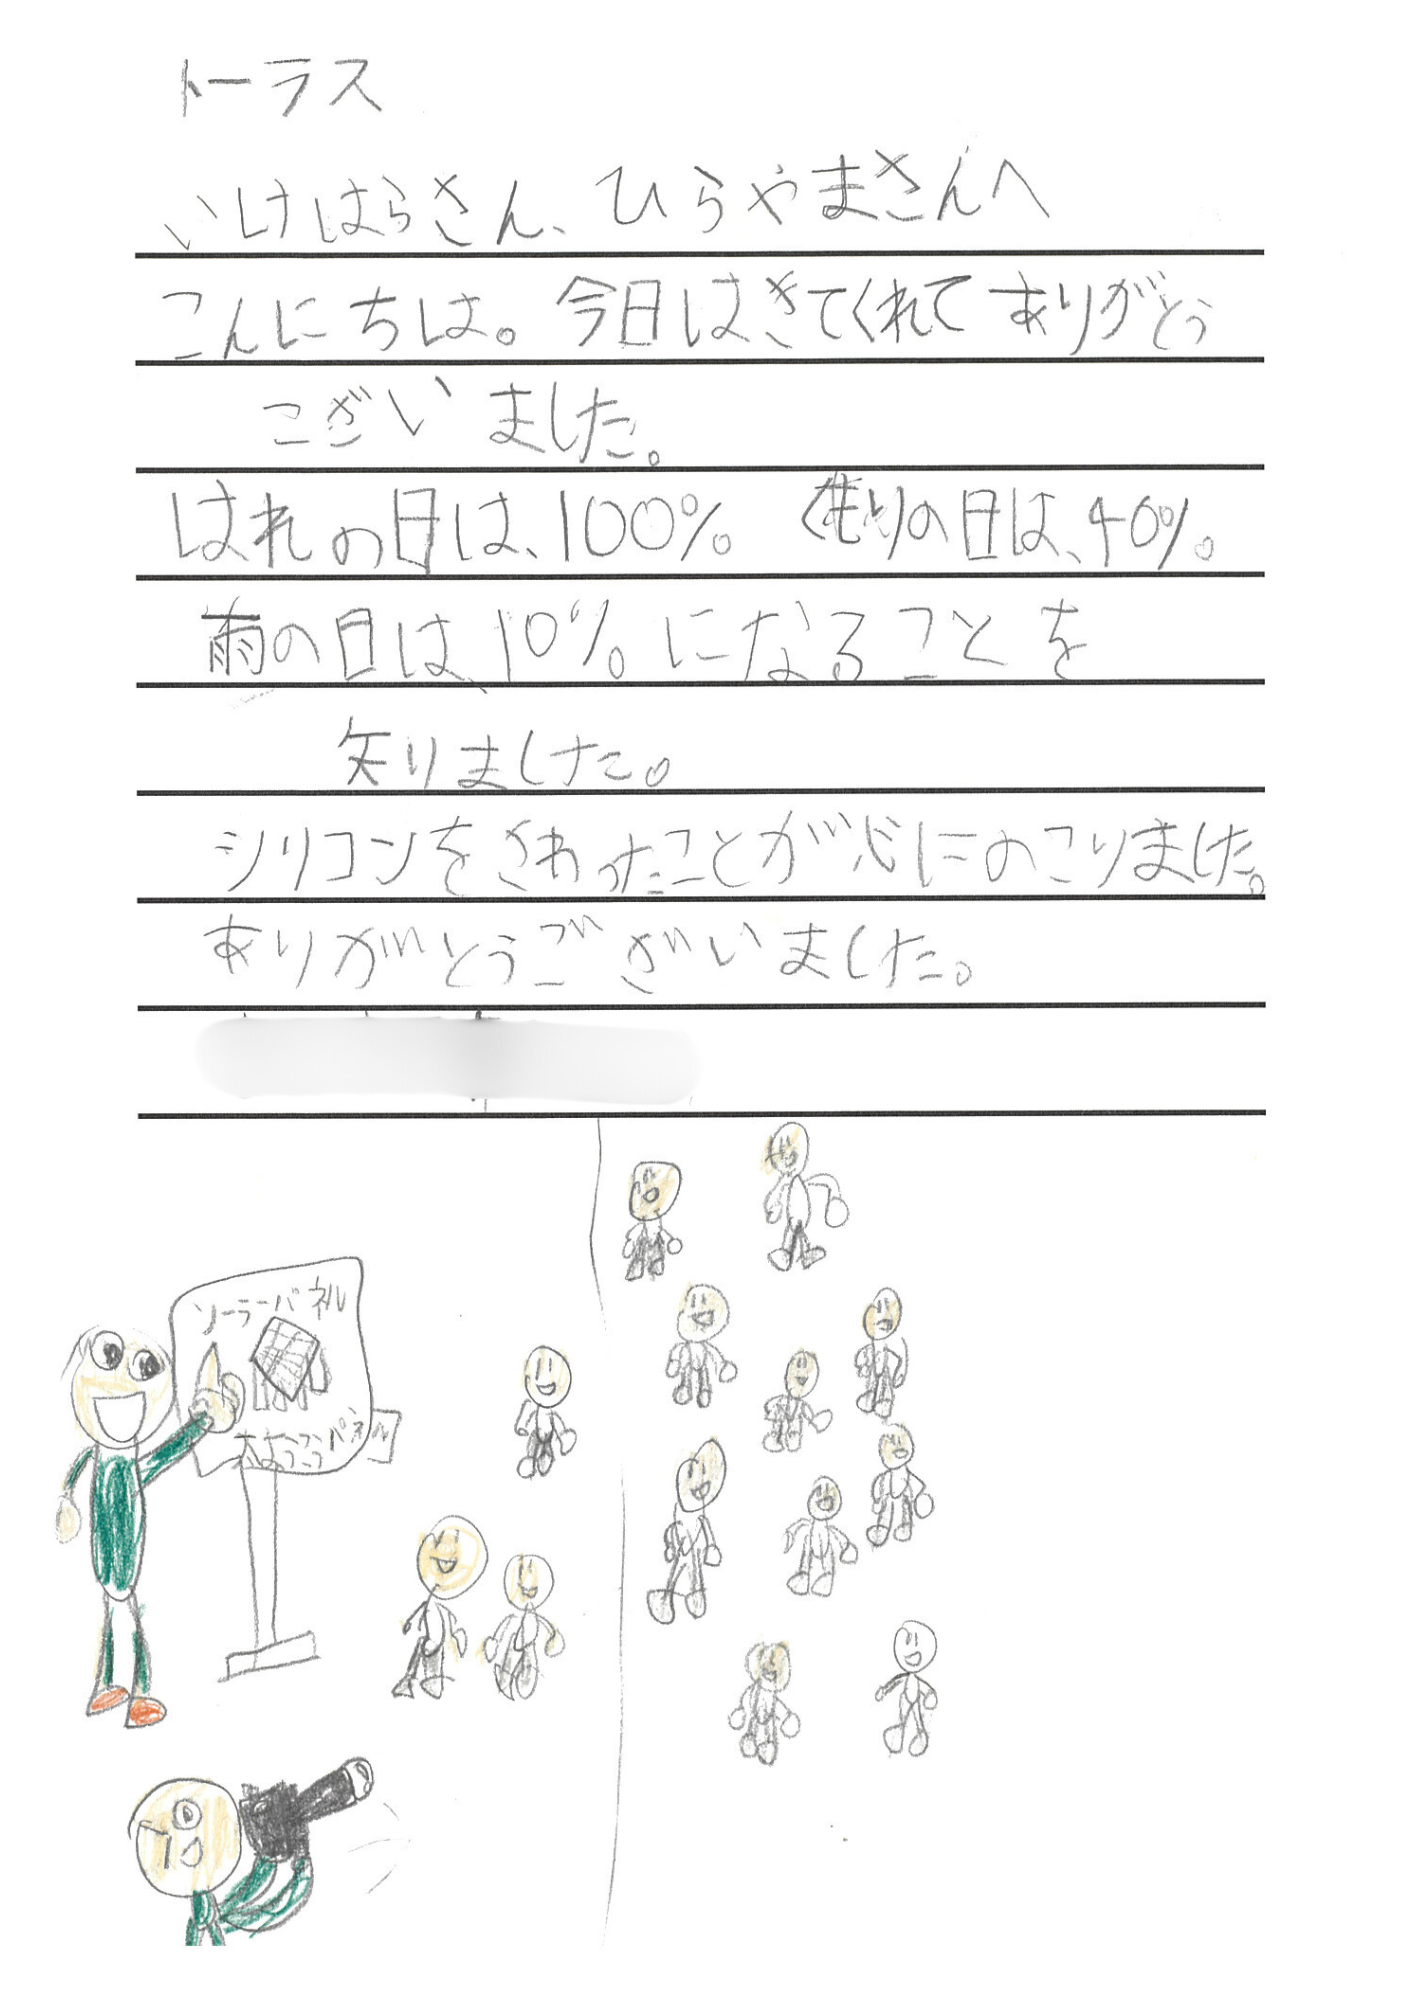 トーラス
いけはらさん、ひらやまさんへ
こんにちは。今日はきてくれてありがとう
ございました。
はれの日は、100%。くもりの日は、40%。
雨の日は、10%。になることを
知りました。
シリコンをさわったことが心にのこりました。
ありがとうございました。
ソーラーパネル
太ようこうパネル